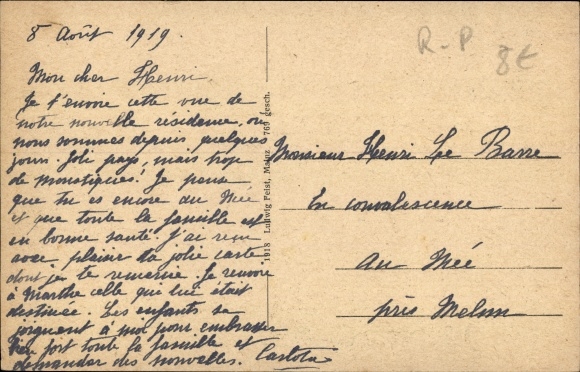 8 Août 1919.
R-P
8€
Mon cher Henri.
Je t'envoie cette vue de
notre nouvelle résidence, où
nous sommes depuis quelques
jours. Joli pays, mais trop
de moustiques! Je pense
que tu es encore au Mée
et que toute la famille est
en bonne santé. J'ai reçu
avec plaisir ta jolie carte
dont je te remercie. Je renvoie
à Marthe celle qui lui était
destinée. Les enfants se
joignent à moi pour embrasser
bien fort toute la famille et
demander des nouvelles. Carlota
1918 Ludwig Feist, Mainz 769 gesch.
Monsieur Henri Le Barre
En convalescence
au Mée
près Melun